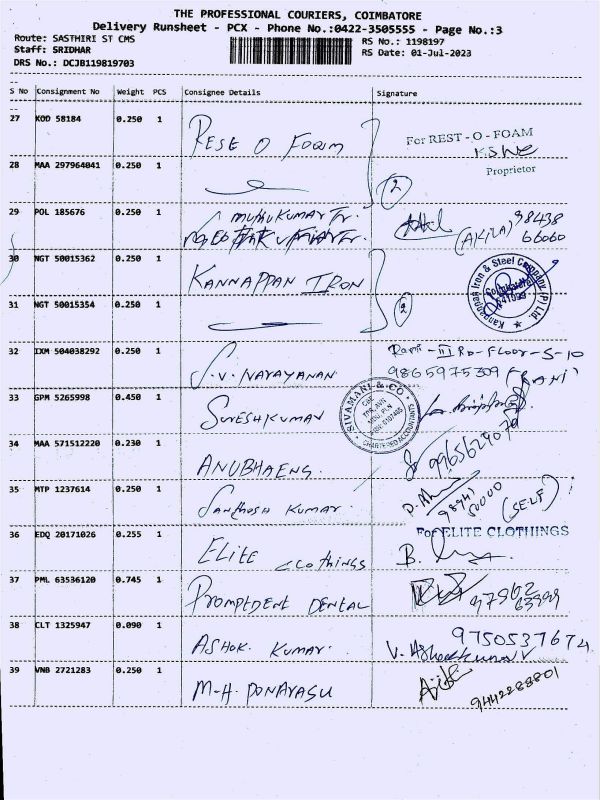 THE PROFESSIONAL COURIERS, COIMBATORE
Delivery Runsheet - PCX - Phone No.:0422-3505555 - Page No.:3
Route: SASTHIRI ST CMS
RS No.: 1198197
Staff: SRIDHAR
RS Date: 01-Jul-2023
DRS No.: DCJB119819703
S No Consignment No Weight PCS Consignee Details Signature
27 KOD 58184 0.250 1 REST O FOAM For REST-O-FOAM
Proprietor
28 MAA 297964041 0.250 1 2
29 POL 185676 0.250 1 MUTHUKUMAR Tr. 98438
66060
30 NGT 50015362 0.250 1 KANNAPPAN IRON Kannappan Iron & Steel Company (P) Ltd.
31 NGT 50015354 0.250 1 2
32 IXM 504038292 0.250 1 S.V. NARAYANAN Rani - III RD-FLOOR-S-10
9865975309 (RANI)
33 GPM 5265998 0.450 1 SURESHKUMAR SIVAMANI & CO CHARTERED ACCOUNTANTS
34 MAA 571512220 0.230 1
35 MTP 1237614 0.250 1 Santhosh Kumar. 98941
50000 (SELF)
36 EDQ 20171026 0.255 1 ELITE CLOTHINGS For ELITE CLOTHINGS
B.
37 PML 63536120 0.745 1 PROMPTDENT DENTAL
38 CLT 1325947 0.090 1 ASHOK. KUMAR. 9750537674
V. Ashokkumar
39 VNB 2721283 0.250 1 M.H. PONARASU 9442288801